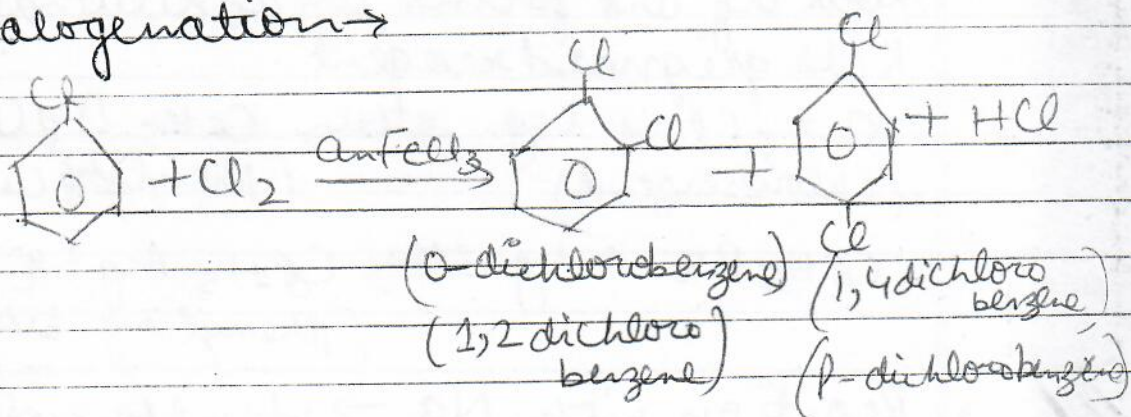 alogenation→
Cl Cl Cl
+ Cl2 anFeCl3 Cl + + HCl
Cl
(o-dichlorobenzene) (1,4 dichloro
benzene)
(1,2 dichloro
benzene) (p-dichlorobenzene)